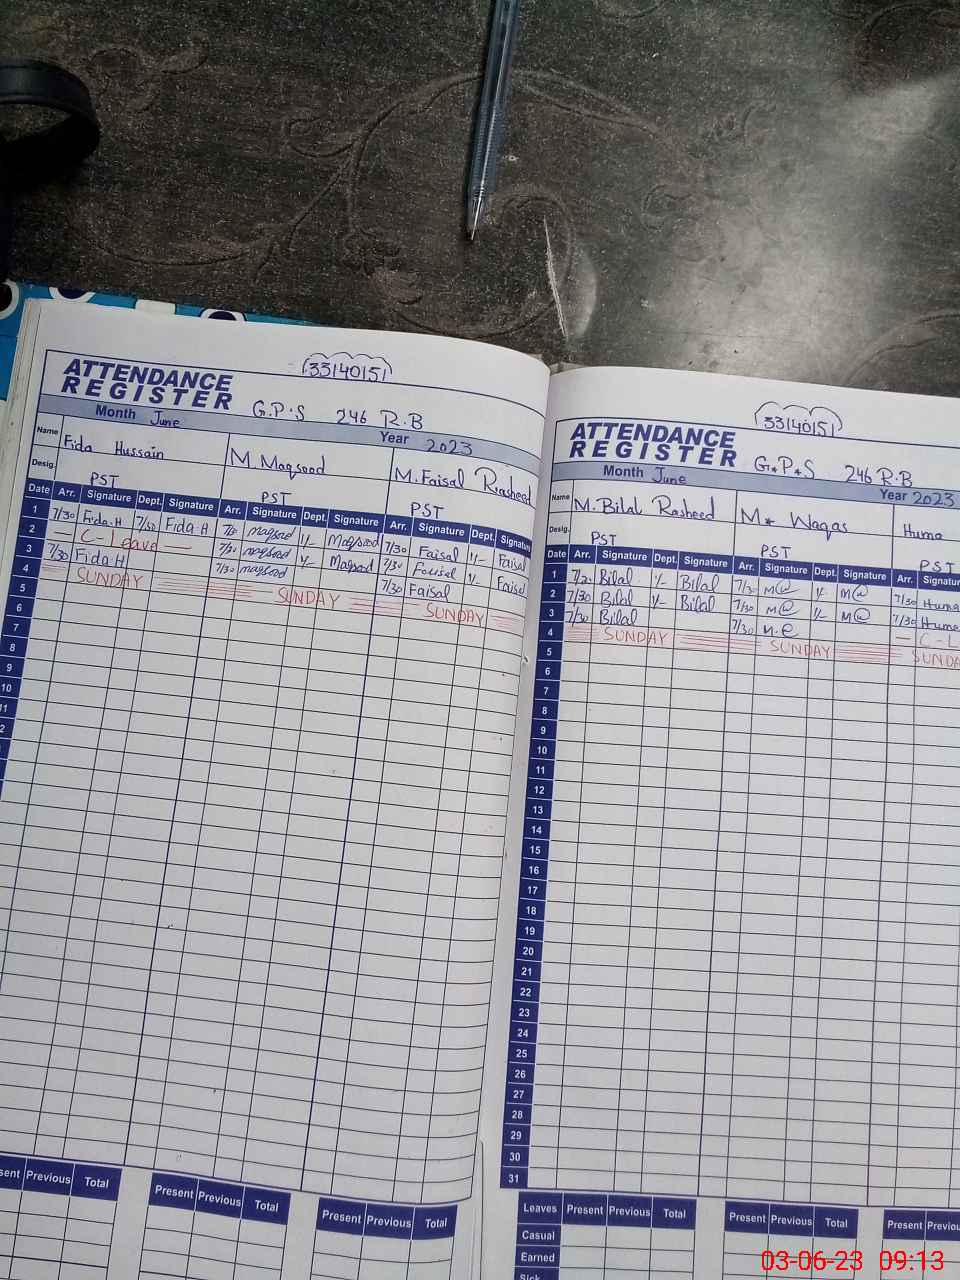 33140151
ATTENDANCE
REGISTER G.P.S 246 R.B
Month June Year 2023
Name Fida Hussain M Maqsood M.Faisal Rasheed
Desig. PST PST PST
Date Arr. Signature Dept. Signature Arr. Signature Dept. Signature Arr. Signature Dept. Signature
1 7/30 Fida.H Fida.H maqsood 1/- Maqsood 7/30 Faisal 1/- Faisal
2 — C-Leave — 7/30 maqsood 1/- Maqsood 7/30 Faisal 1/- Faisal
3 7/30 Fida.H 7/30 maqsood 7/30 Faisal
4 SUNDAY SUNDAY SUNDAY
5
6
7
8
9
10
11
Present Previous Total Present Previous Total Present Previous Total
33140151
ATTENDANCE
REGISTER G*P*S 246 R.B
Month June Year 2023
Name M.Bilal Rasheed M* Waqas Huma
Desig. PST PST PST
Date Arr. Signature Dept. Signature Arr. Signature Dept. Signature Arr.
1 Bilal 1/- Bilal 7/30 M@ 1/- M@ 7/30 Huma
2 7/30 Bilal 1/- Bilal 7/30 M@ 1/- M@ 7/30 Huma
3 7/30 Bilal 7/30 M.@ — C-L
4 SUNDAY SUNDAY SUNDA
5
6
7
8
9
10
11
12
13
14
15
16
17
18
19
20
21
22
23
24
25
26
27
28
29
30
31
Leaves Present Previous Total Present Previous Total Present
Casual
Earned
Sick
03-06-23 09:13